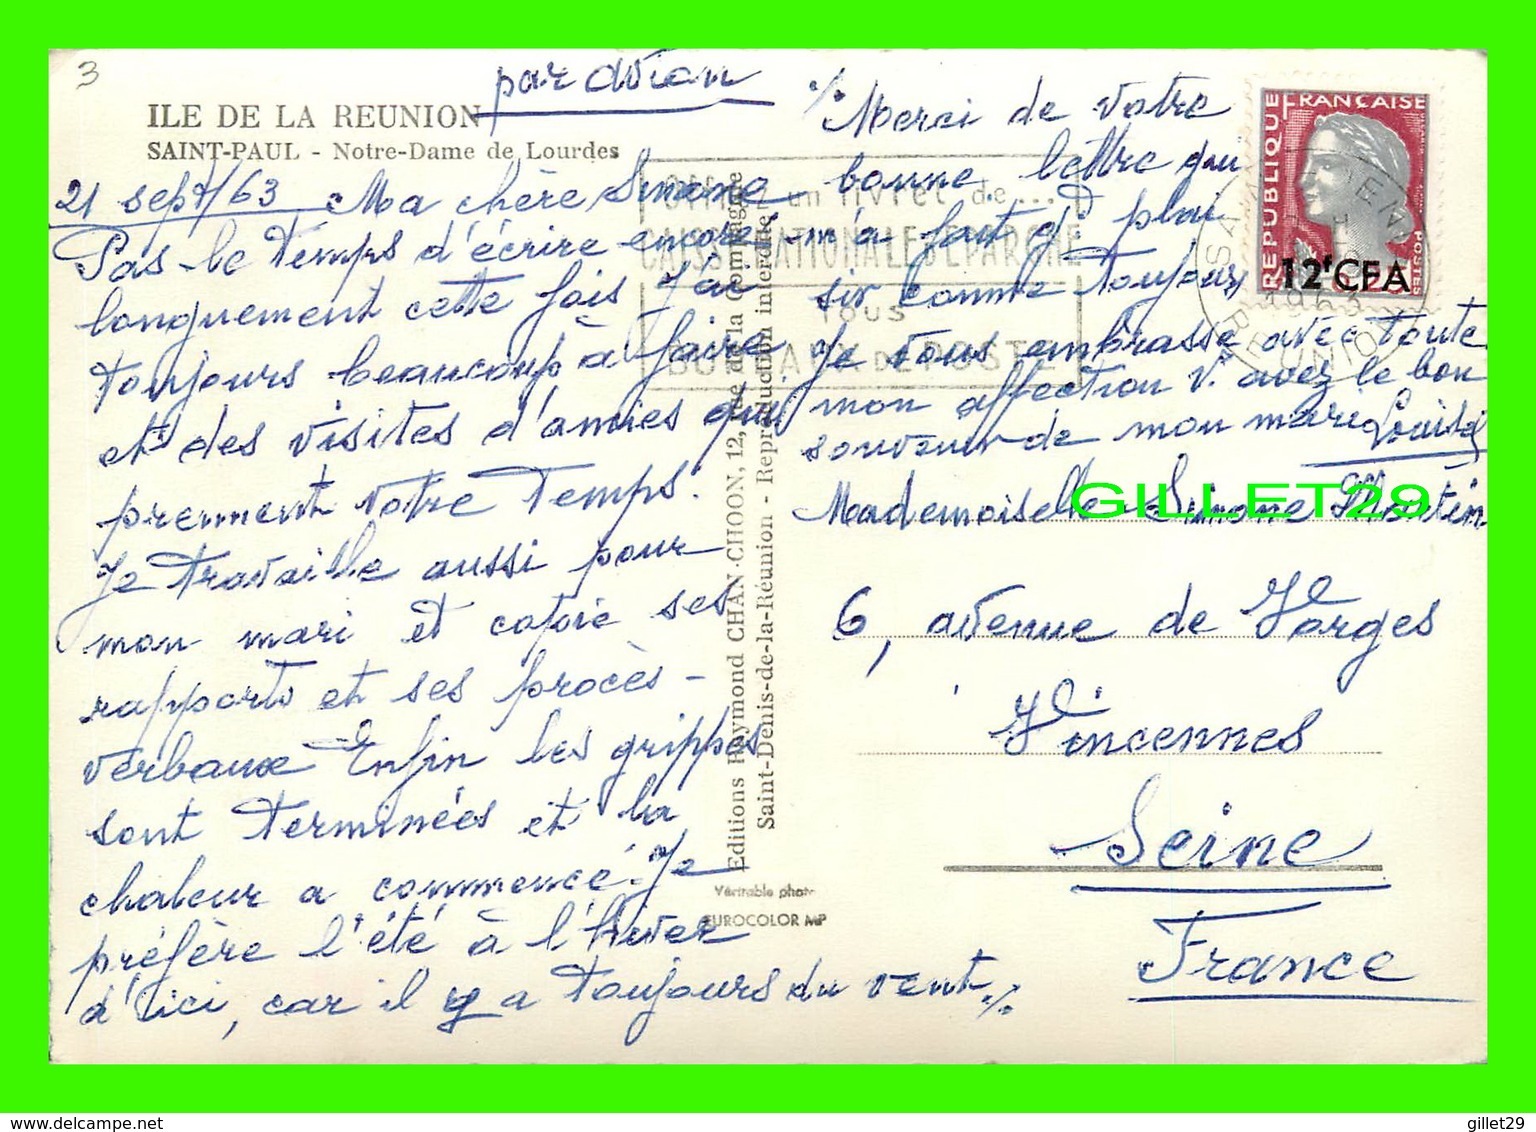 3
par avion
ILE DE LA REUNION
SAINT-PAUL - Notre-Dame de Lourdes
21 sept/63 Ma chère Simone
Pas le temps d'écrire encore
longuement cette fois J'ai
toujours beaucoup à faire
et des visites d'amies qui
prennent votre temps.
Je travaille aussi pour
mon mari et copie ses
rapports et ses procès-
verbaux Enfin les grippes
sont terminées et la
chaleur a commencé. Je
préfère l'été à l'hiver
d'ici, car il y a toujours du vent ./.
./. Merci de votre
bonne lettre qui
m'a fait gd plai
sir comme toujours
Je vous embrasse avec toute
mon affection V. avez le bon
souvenir de mon mari Louise
Mademoiselle Simone
6, avenue de
Vincennes
Seine
France
Editions Raymond CHAN-CHOON, 12, rue de la Compagnie
Saint-Denis-de-la-Réunion - Reproduction interdite
Véritable photo
EUROCOLOR MP
un livret de...
CAISSE NATIONALE D'EPARGNE
TOUS
BUREAUX DE POSTE
REPUBLIQUE FRANÇAISE
POSTES
12F CFA
1963
REUNION
GILLET29
delcampe.net
gillet29